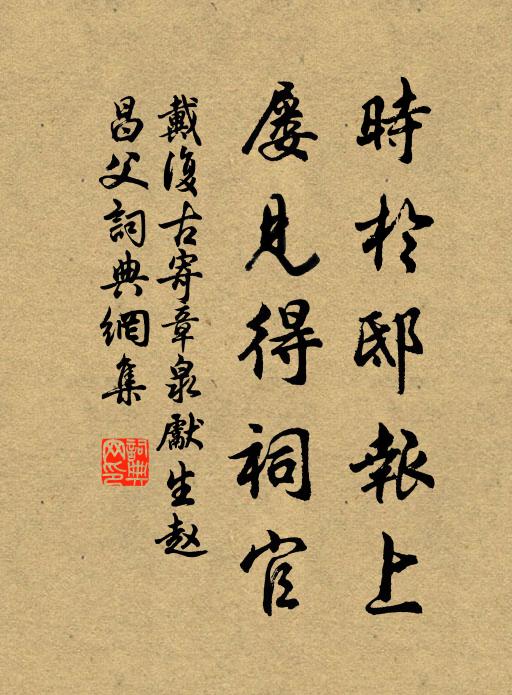 時於邸報上
屡見得祠官
戴復古寄章泉獻生趙
昌父詞典網集
詞典網印